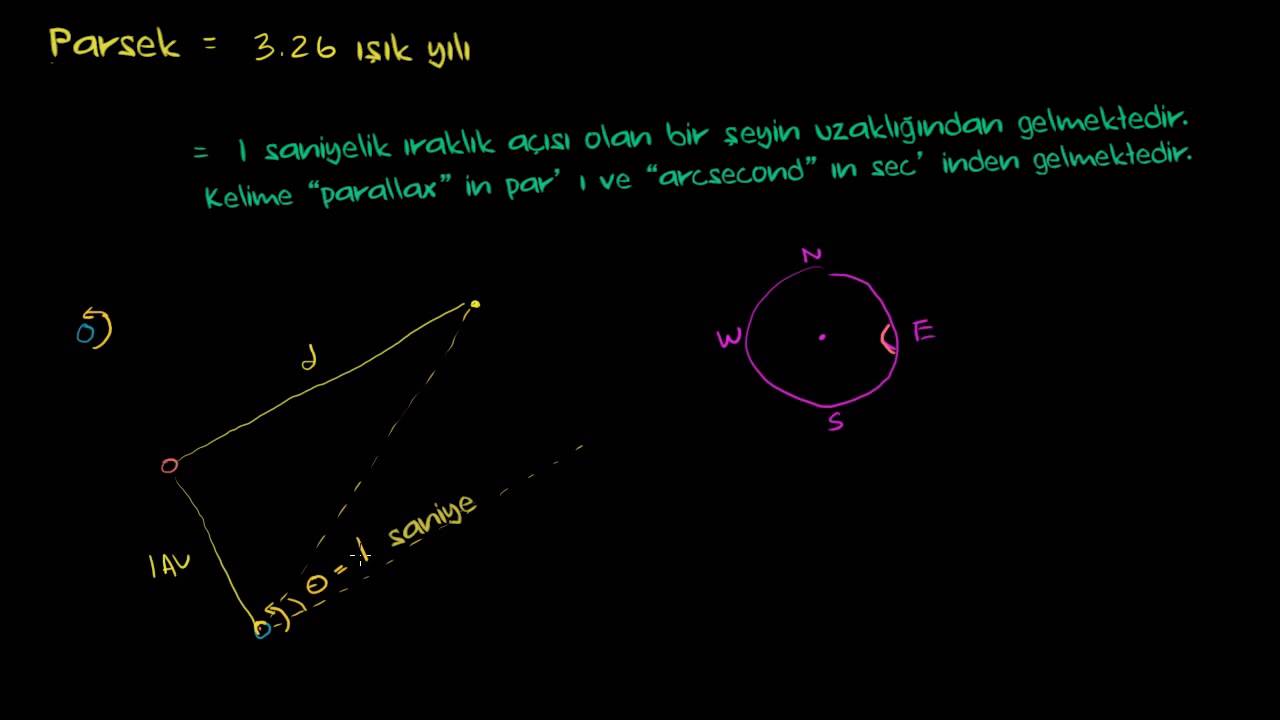 Parsek = 3.26 ışık yılı
= 1 saniyelik ıraklık açısı olan bir şeyin uzaklığından gelmektedir.
Kelime “parallax” in par’ ı ve “arcsecond” ın sec’ inden gelmektedir.
N
W
E
S
d
1AU
θ = 1 saniye